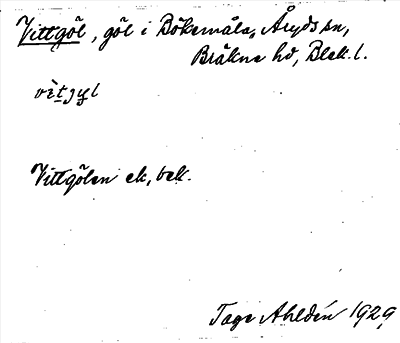 Vittgöl, göl i Bökemåla, Åryds sn,
Bräkne hd, Blek. l.
Vittgölen ek, bek.
Tage Ahldén 1929